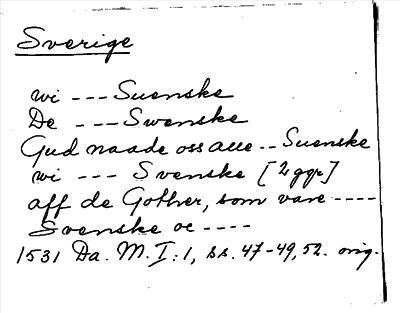 Sverige
wi --- Suenske
De --- Swenske
Gud naade oss alle -- Suenske
wi --- Svenske [2 ggr]
aff de Gother, som vare ----
Svenske oc ----
1531 Da. M. I:1, ss. 47-49, 52. orig.